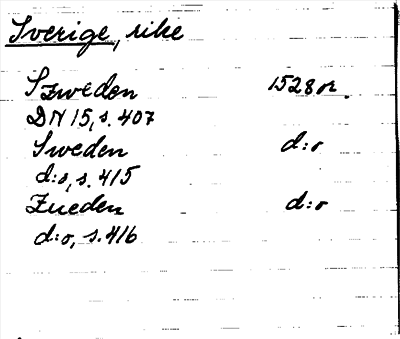 Sverige, rike
Szweden 1528 or.
DN 15, s. 407
Sweden d:o
d:o, s. 415
Zueden d:o
d:o, s. 416